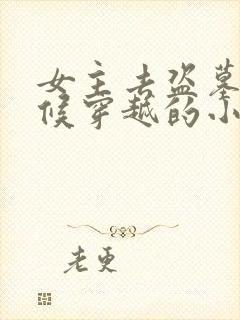 女主去盗墓
候穿越的小
老更